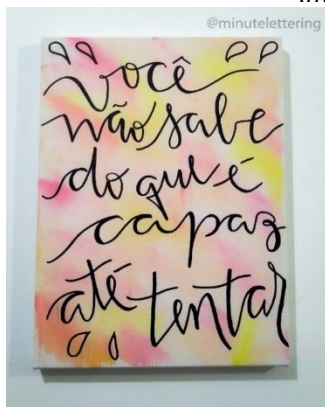 @minutelettering
você
não sabe
do que é
capaz
até tentar